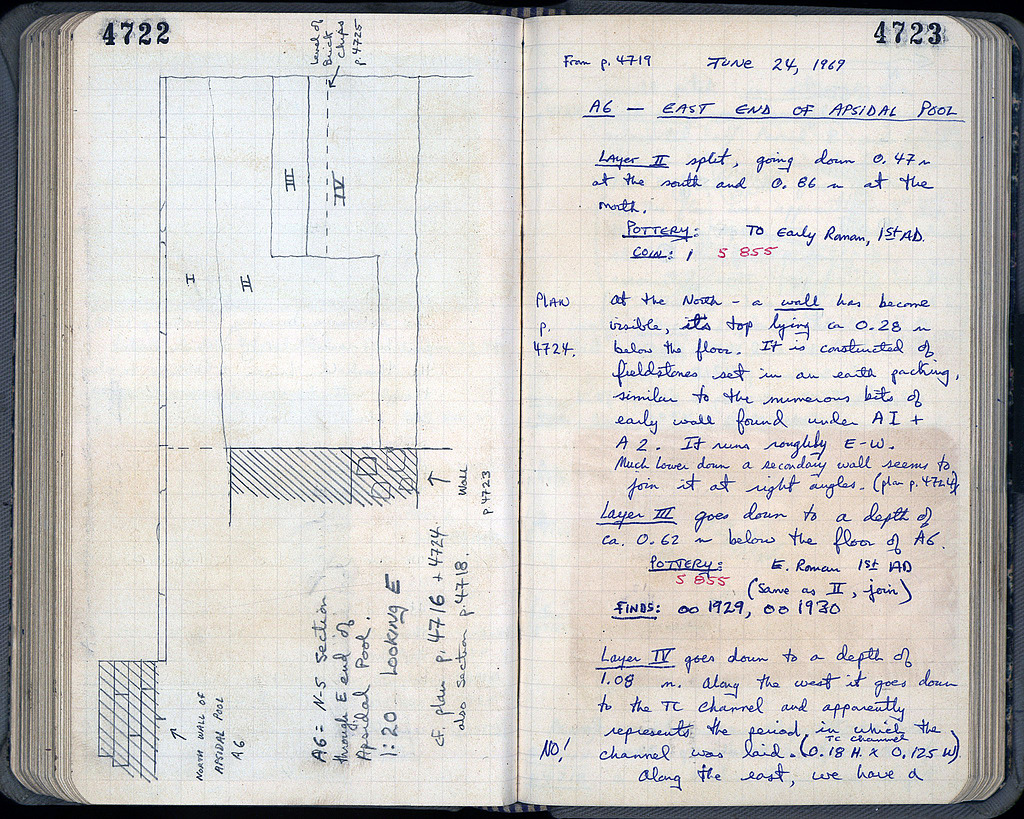 4722
Level of
Brick
Chips
p. 4725
I
II
III
IV
Wall
p. 4723
NORTH WALL OF
APSIDAL POOL
A6
A6 = N-S Section
through E end of
Apsidal Pool.
1:20 LOOKING E
cf. plan p. 4716 + 4724
also section p. 4718.
4723
From p. 4719 JUNE 24, 1969
A6 — EAST END OF APSIDAL POOL
Layer II split, going down 0.47 m
at the south and 0.86 m at the
north.
POTTERY: TO Early Roman, 1st AD.
COIN: 1 5 855
PLAN
p.
4724.
At the North - a wall has become
visible, its top lying ca 0.28 m
below the floor. It is constructed of
fieldstones set in an earth packing,
similar to the numerous bits of
early wall found under A1 +
A2. It runs roughly E-W.
Much lower down a secondary wall seems to
join it at right angles. (plan p. 4724)
Layer III goes down to a depth of
ca. 0.62 m below the floor of A6.
POTTERY: E. Roman 1st AD
5 855 (same as II, join)
FINDS: oo 1929, oo 1930
Layer IV goes down to a depth of
1.08 m. Along the west it goes down
to the TC channel and apparently
represents the period in which the
NO! channel was laid. (TC channel 0.18 H. x 0.125 W)
Along the east, we have a